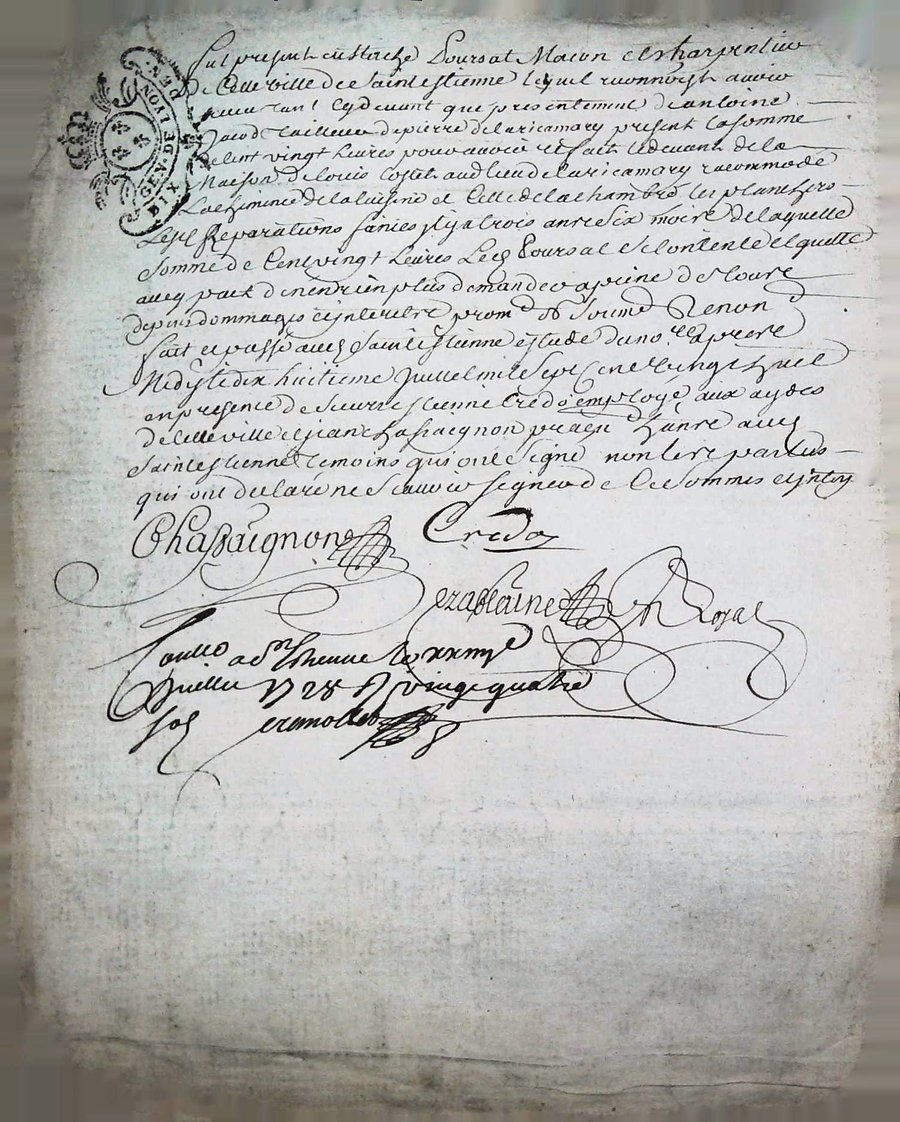 GEN. DE LION
DIX DEN.
Fut present eustache Boursat Masson et charpentier
de cette ville de Saint estienne lequel reconnoist avoir
receu tant cydevant que presentement d'antoine
tailleur de pierre de la ricamary present la somme
de cent vingt livres pour avoir refait le devant de la
Maison de louis au lieu de la ricamary racommodé
La cheminée de la cuisine et celle de la chambre les planchers
Lesd Reparations finies il y a trois ans six mois de laquelle
Somme de Cent vingt Livres Led Boursat se contente et quitte
avec pact de n'en rien plus demander a peine de tous
depens dommages et interests prom obl soum Renon
fait et passé aud Saint Estienne estude du no.re apres
Midy le dix huitieme Juillet mil sept cent vingt huit
en presence de sieurs estienne Credo employé aux aydes
de cette ville et jean Chassaignon aud
Saint Estienne temoins qui ont signé non les parties
qui ont declaré ne scavoir signer de ce sommes et
Chassaignon Credo
Dezablaine
Royal
Conllé a St Etienne le
Juillet 1728 R vingt quatre
sols